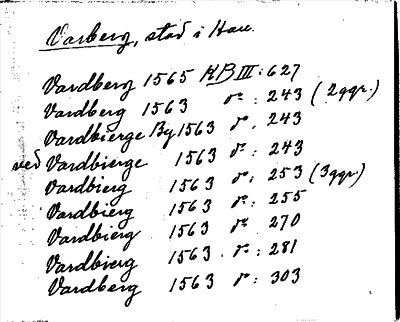 Varberg, stad i Hall.
Vardberg 1565 KB III: 627
Vardberg 1563 do : 243 (2ggr.)
Vardbierge By 1563 do . 243
ved Vardbierge 1563 do : 243
Vardbierg 1563 do : 253 (3ggr.)
Vardbierg 1563 do : 255
Vardbierg 1563 do 270
Vardbierg 1563 . do : 281
Vardberg 1563 do : 303